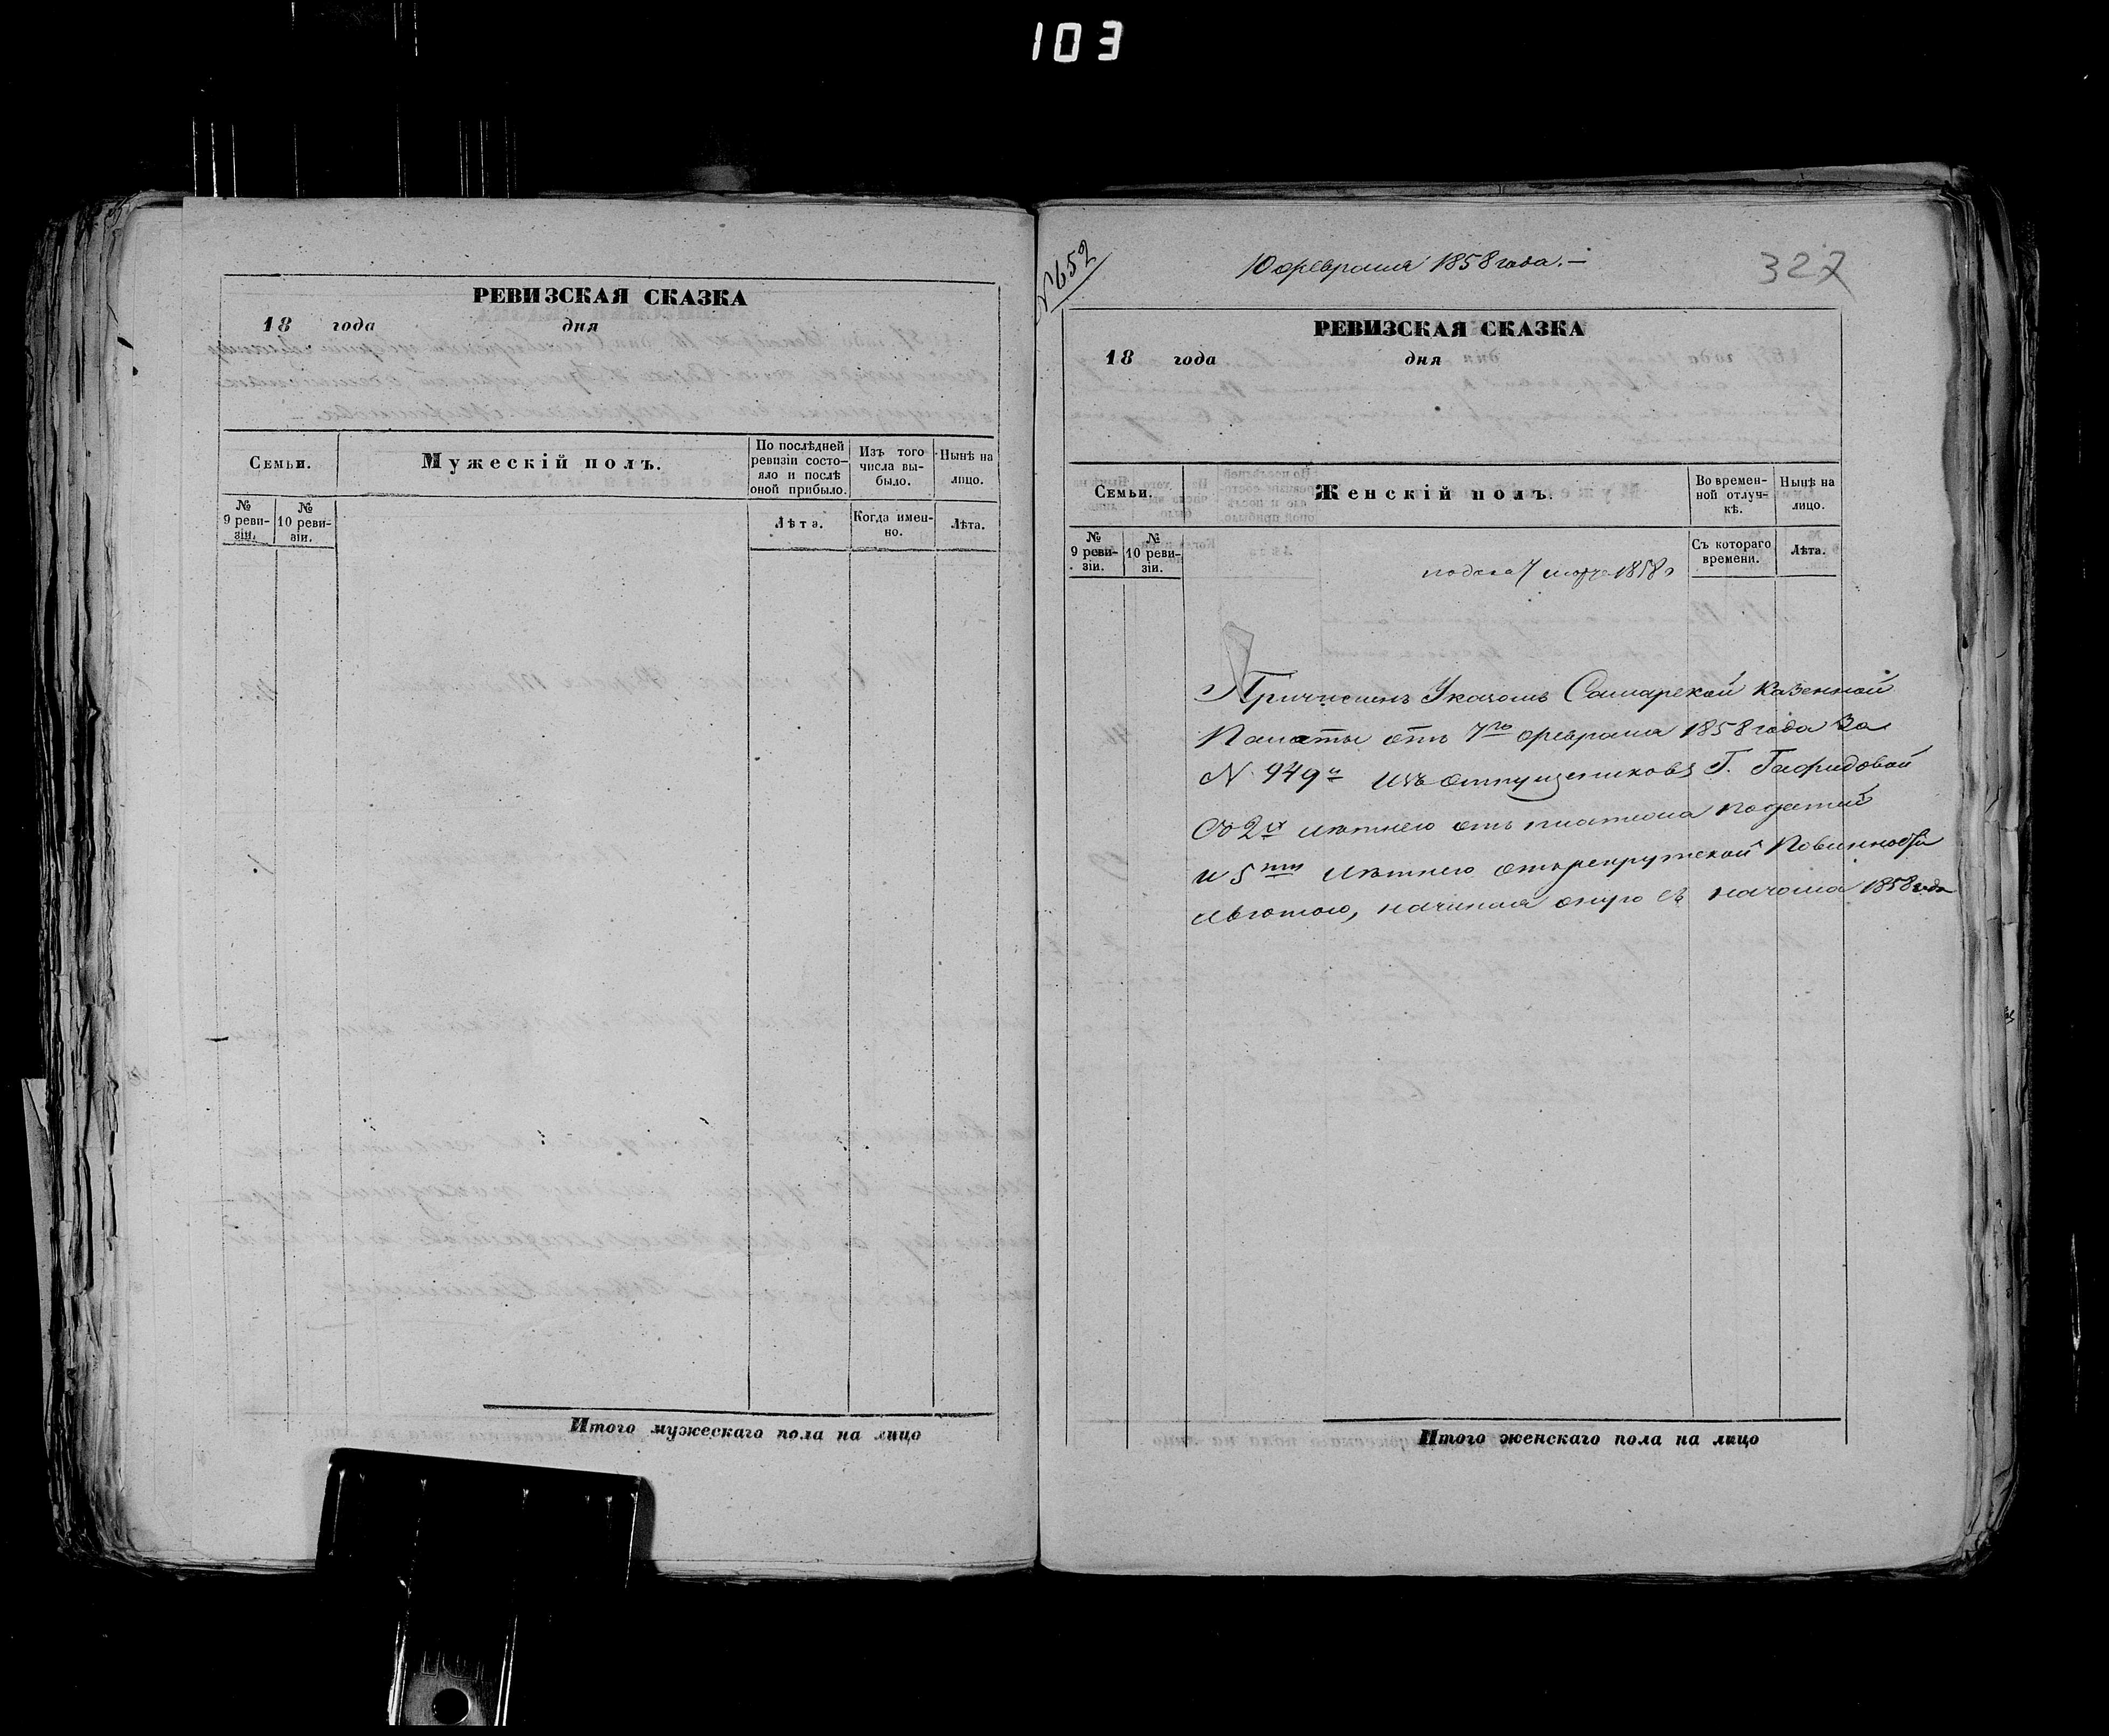 103
РЕВИЗСКАЯ СКАЗКА
18 года дня
Семьи.
Мужескій полъ.
По послѣдней ревизіи состояло и послѣ оной прибыло.
Изъ того числа выбыло.
Нынѣ на лицо.
№ 9 ревизіи.
№ 10 ревизіи.
Лѣта.
Когда именно.
Лѣта.
Итого мужескаго пола на лицо
N 652
10 февраля 1858 года. —
327
РЕВИЗСКАЯ СКАЗКА
18 года дня
Семьи.
Женскій полъ.
Во временной отлучкѣ.
Нынѣ на лицо.
№ 9 ревизіи.
№ 10 ревизіи.
Съ котораго времени.
Лѣта.
7 1858
Причисленъ Указомъ Самарской Казенной
Палаты отъ 7го февраля 1858 года За
N 949 изъ отпущениковъ Г.
Съ 2х лѣтнею отъ платежа податей
и 5ти лѣтнею отъ рекрутской Повинности
льготою, начиная оную съ начала 1858 года
Итого женскаго пола на лицо